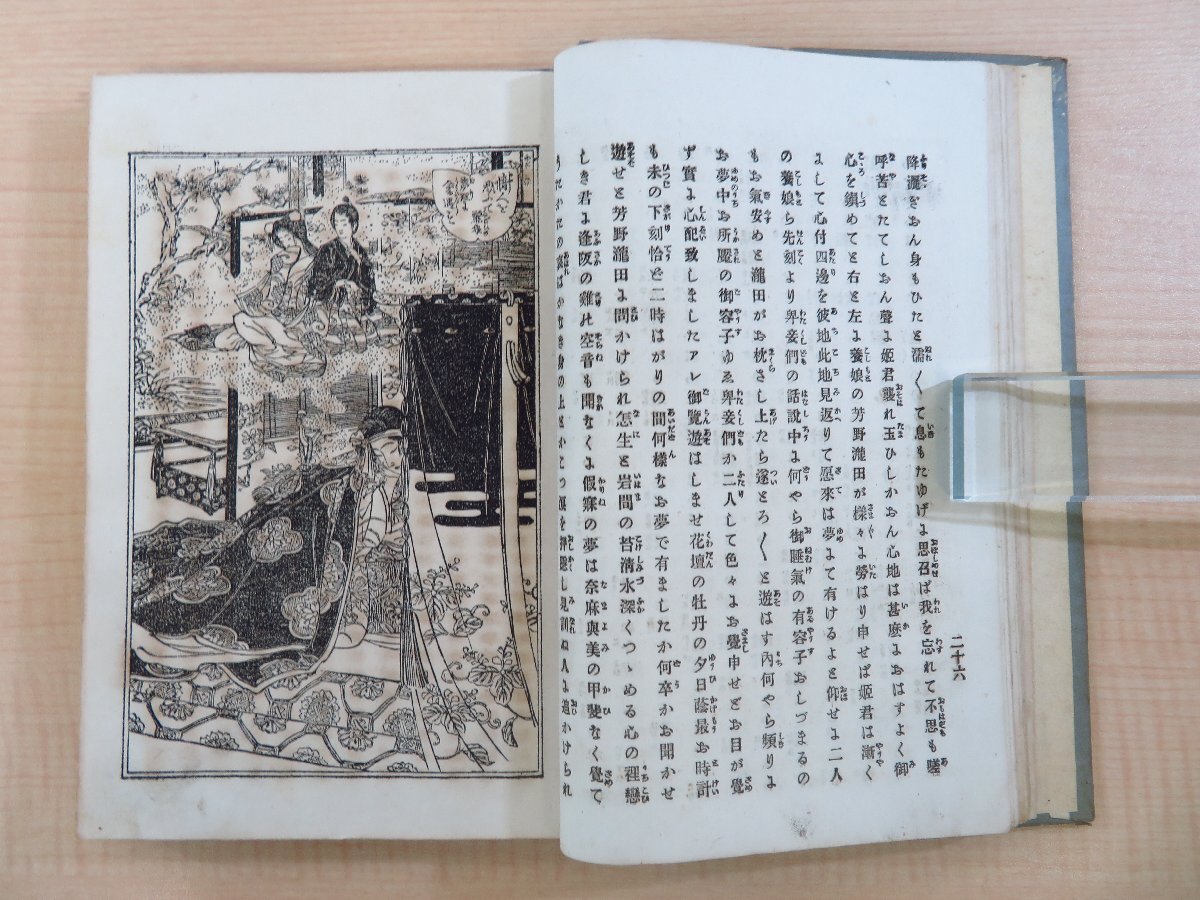 降灑ぎおん身もひたと濡れ〱て息もたゆげよ思召ば我を忘れて不思も嗟
呼苦とたてしおん聲よ姫君襲れ玉ひしかおん心地は甚麽よおはすよく御
心を鎭めてと右と左よ養娘の芳野瀧田が樣々よ勞はり申せば姫君は漸く
よして心付四邊を彼地此地見返りて愿來は夢よて有けるよと仰せよ二人
の養娘ら先刻より卑妾們の話說中よ何やら御睡氣の有容子おしづまるの
もお氣安めと瀧田がお枕さし上たら遂とろ〱と遊はす內何やら頻りよ
お夢中お所魘の御容子ゆゑ卑妾們か二人して色々よお覺申せどお目が覺
ず實よ心配致しましたアレ御覽遊はしませ花壇の牡丹の夕日蔭最お時計
も未の下刻恰ど二時はがりの間何樣なお夢で有ましたか何卒かお聞かせ
遊せと芳野瀧田よ問かけられ怎生と岩間の苔清水深くつゝめる心の裡戀
しき君よ逢阪の雞の空音も聞なくよ假寐の夢は奈麻與美の甲斐なく覺て
二十六